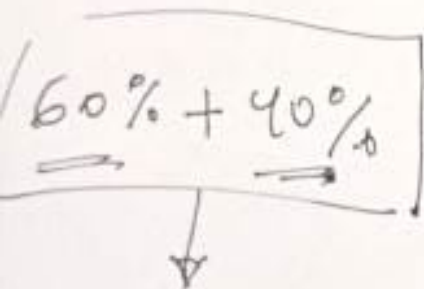 60% + 40%